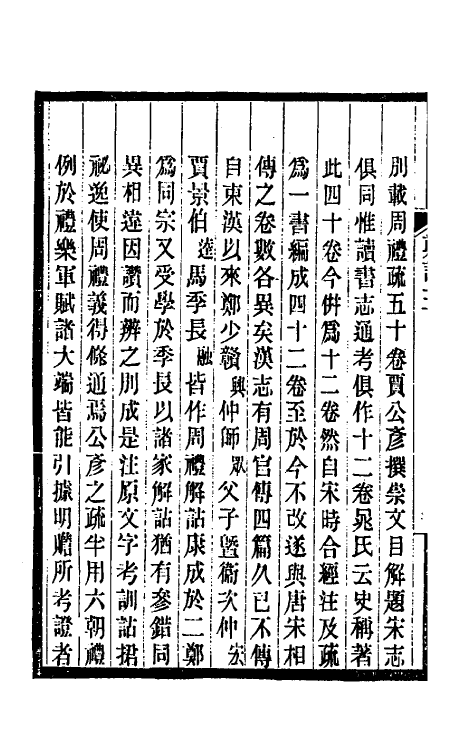 別載周禮疏五十卷賈公彥撰崇文目解題宋志
俱同惟讀書志通考俱作十二卷晁氏云史稱著
此四十卷今併爲十二卷然自宋時合經注及疏
爲一書編成四十二卷至於今不改遂與唐宋相
傳之卷數各異矣漢志有周官傳四篇久已不傳
自東漢以來鄭少贛興仲師眾父子曁衞次仲宏
賈景伯逵馬季長融皆作周禮解詁康成於二鄭
爲同宗又受學於季長以諸家解詁猶有參錯同
異相違因讚而辨之則成是注原文字考訓詁捃
祕逸使周禮義得條通焉公彥之疏半用六朝禮
例於禮樂軍賦諸大端皆能引據明贍所考證者